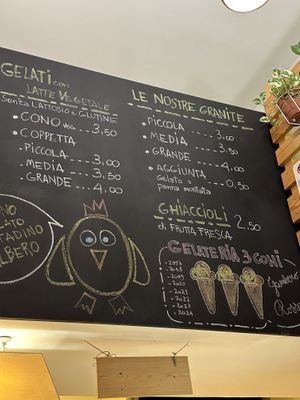 GELATI con
LATTE VEGETALE
Senza LATTOSIO e GLUTINE
• CONO veg --- 3,50
• COPPETTA
PICCOLA --- 3,00
MEDIA ---- 3,50
GRANDE ---- 4,00
LE NOSTRE GRANITE
• PICCOLA ---- 3,00
• MEDIA ---- 3,50
• GRANDE ---- 4,00
• AGGIUNTA
gelato o panna montata --- 0,50
GHIACCIOLI
di FRUTTA FRESCA 2,50
GELATERIA 3 CONI
- 2019
- 2020
- 2021
- 2022
- 2023
- 2024
Gambero
Rosso